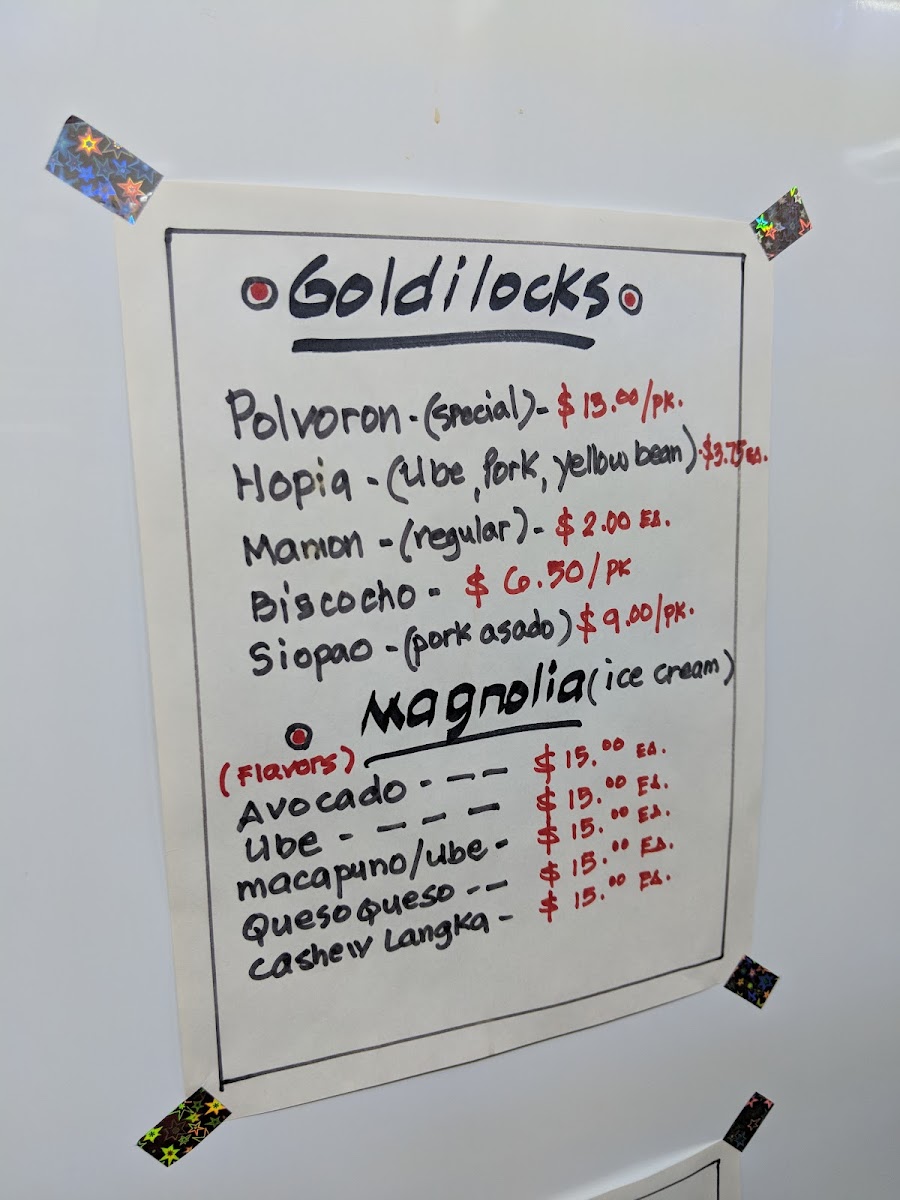 Goldilocks
Polvoron - (special) - $13.00/PK.
Hopia - (Ube, Pork, yellow bean) - $3.75 EA.
Mamon - (regular) - $2.00 EA.
Biscocho - $6.50/PK
Siopao - (pork asado) $9.00/PK.
Magnolia (ice cream)
(Flavors)
Avocado - - - - $15.00 EA.
Ube - - - - $15.00 EA.
macapuno/ube - $15.00 EA.
Queso Queso - - $15.00 EA.
Cashew Langka - $15.00 EA.